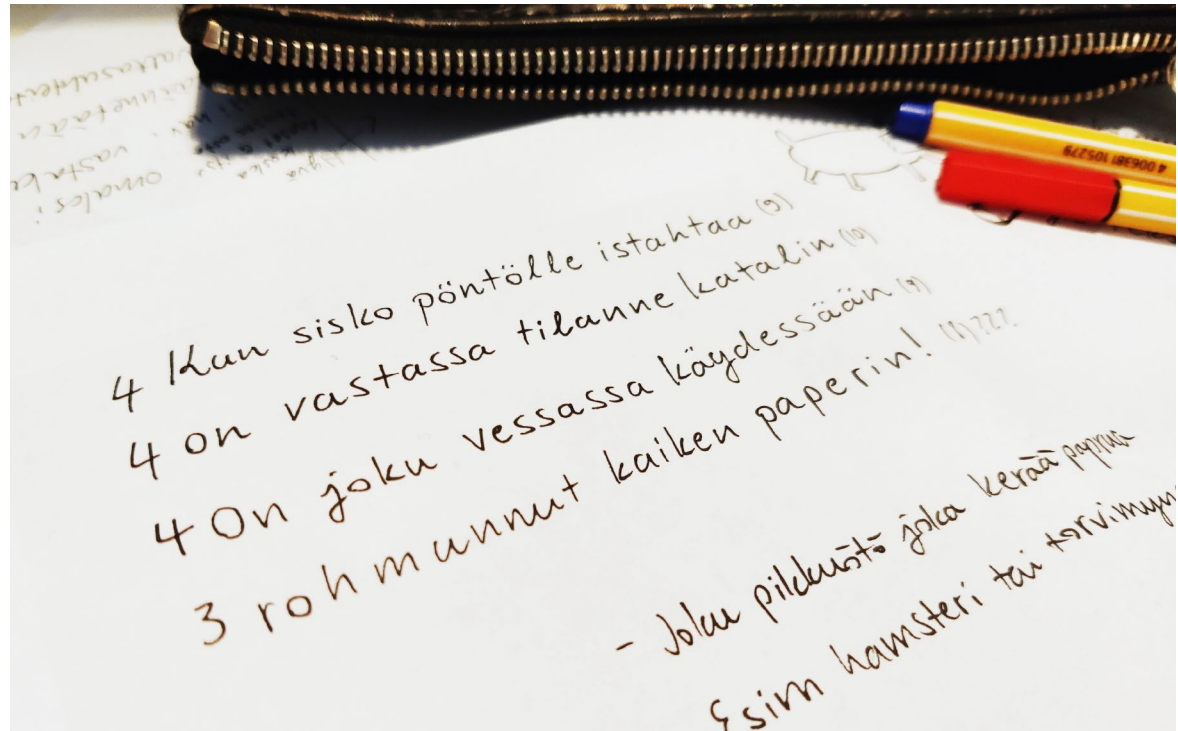 4 Kun sisko pöntölle istahtaa (9)
4 on vastassa tilanne katalin (10)
4 On joku vessassa käydessään (9)
3 rohmunnut kaiken paperin! (11)???
- Joku pikkuötö joka kerää
Esim hamsteri tai
4 006381 105279
omalesi
Hyvä